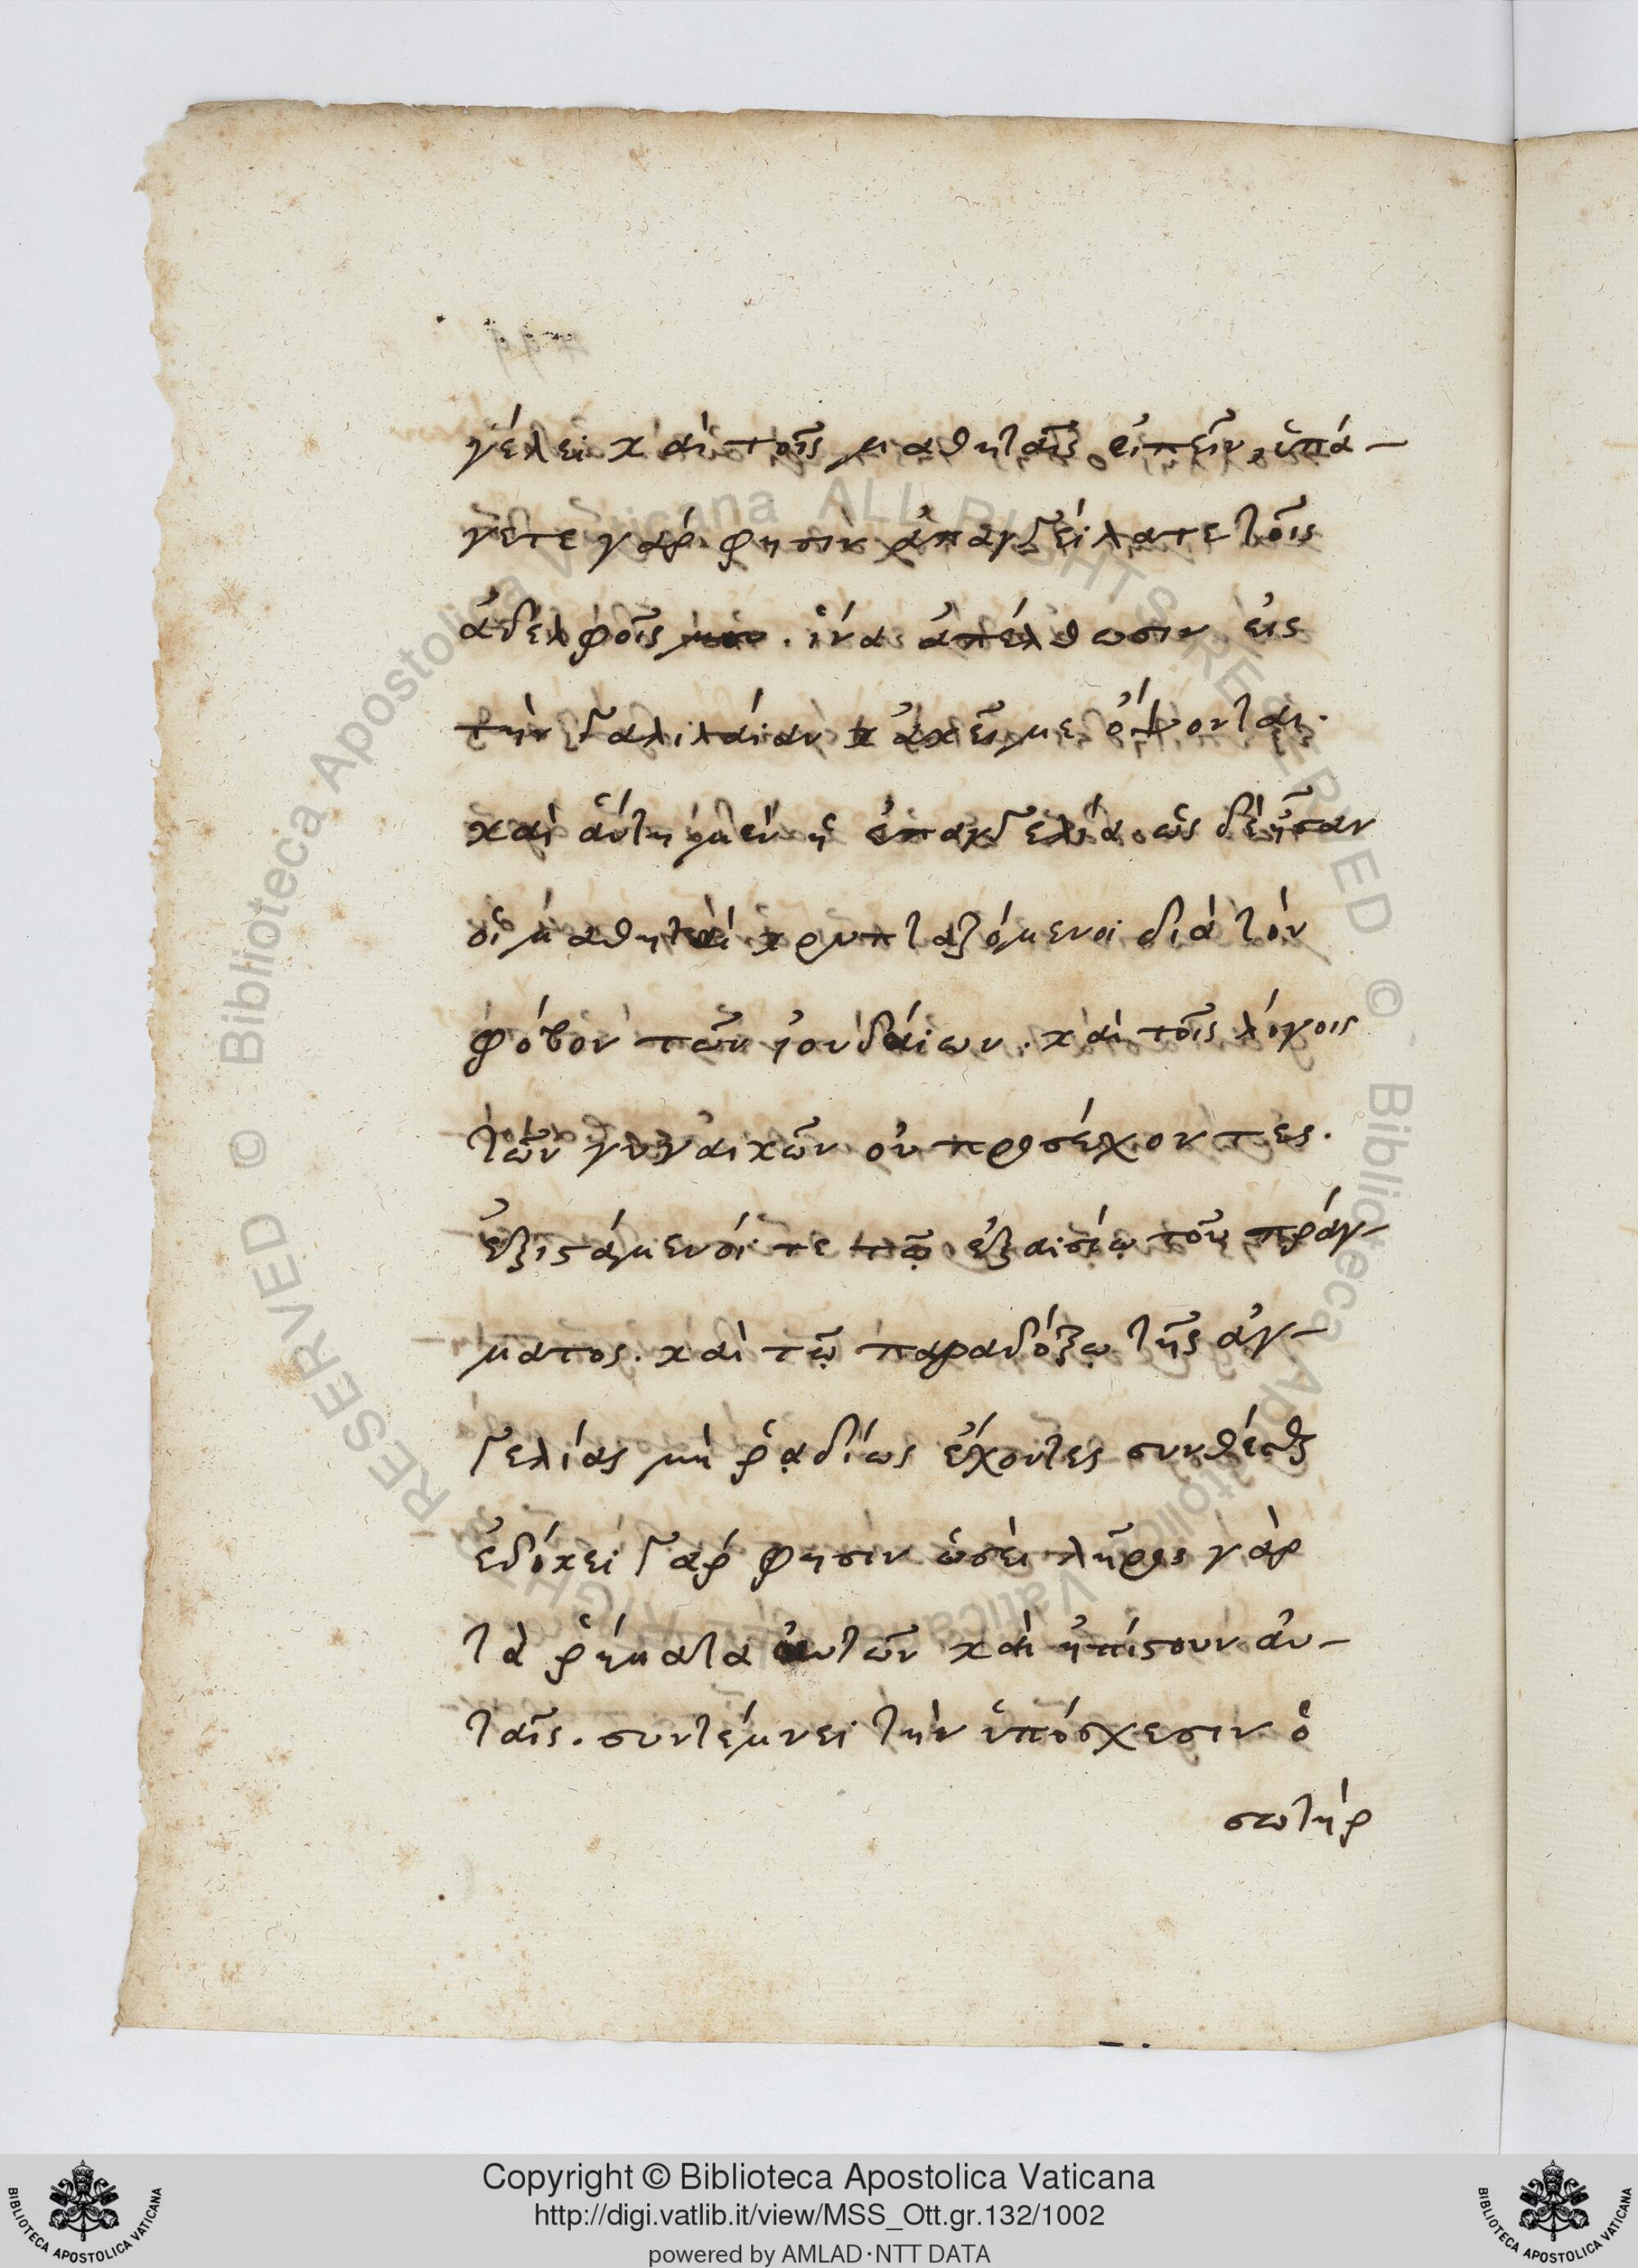 γέλει καὶ τοῖς μαθηταῖς εἰπεῖν, ὑπά-
γετε γάρ φησιν ἀπαγγείλατε τοῖς
ἀδελφοῖς μου. ἵνα ἀπέλθωσιν εἰς
τὴν Γαλιλαίαν κἀκεῖ με ὄψονται.
καὶ αὕτη μὲν ἡ ἐπαγγελία. ὡς δὲ ἦσαν
οἱ μαθηταὶ κρυπταζόμενοι διὰ τὸν
φόβον τῶν ἰουδαίων. καὶ τοῖς λόγοις
τῶν γυναικῶν οὐ προσέχοντες.
ἐξιστάμενοί τε τῷ ἐξαισίῳ τοῦ πράγ-
ματος. καὶ τῷ παραδόξῳ τῆς ἀγ-
γελίας μὴ ῥᾳδίως ἔχοντες συνθέσθαι
ἐδόκει γάρ φησιν ὡσεὶ λῆρος γὰρ
τὰ ῥήματα αὐτῶν καὶ ἠπίστουν αὐ-
ταῖς. συντέμνει τὴν ὑπόσχεσιν ὁ
σωτήρ
RESERVED © Biblioteca Apostolica Vaticana ALL RIGHTS RESERVED © Biblioteca Apostolica Vaticana ALL RIGHTS
Copyright © Biblioteca Apostolica Vaticana
http://digi.vatlib.it/view/MSS_Ott.gr.132/1002
powered by AMLAD·NTT DATA
BIBLIOTECA APOSTOLICA VATICANA
BIBLIOTECA APOSTOLICA VATICANA